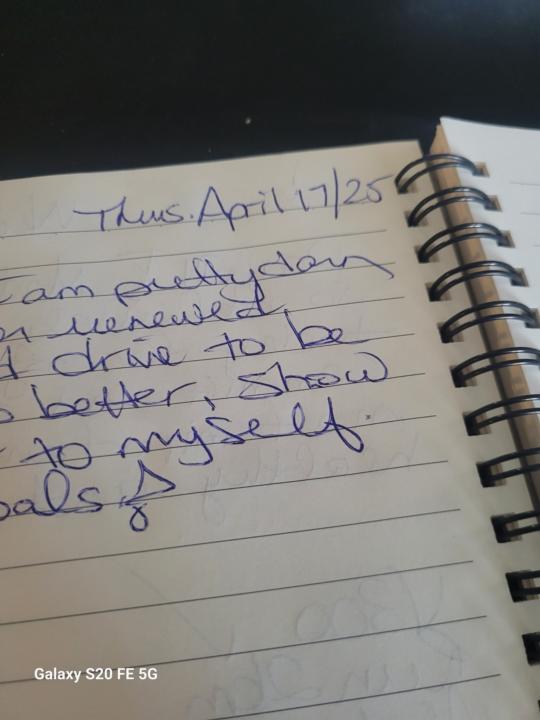 Thurs. April 17/25
I am pretty darn
renewed
drive to be
better, show
to myself.
Galaxy S20 FE 5G